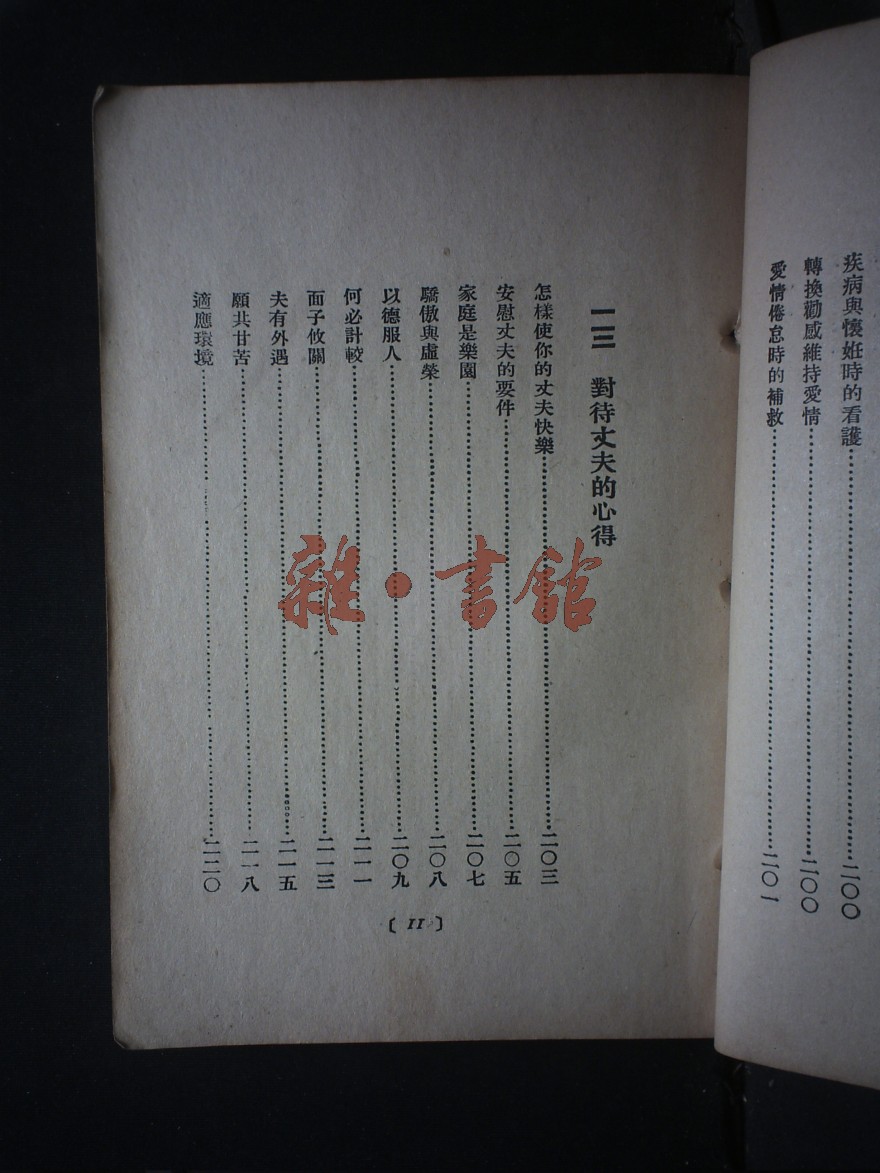 疾病與懷姙時的看護……二〇〇
轉換勸感維持愛情……二〇〇
愛情倦怠時的補救……二〇一
一三 對待丈夫的心得
怎樣使你的丈夫快樂……二〇三
安慰丈夫的要件……二〇五
家庭是樂園……二〇七
驕傲與虛榮……二〇八
以德服人……二〇九
何必計較……二一一
面子攸關……二一三
夫有外遇……二一五
願共甘苦……二一八
適應環境……二二〇
〔 II 〕
雜·書館